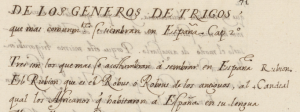 DE LOS GENEROS DE TRIGOS
que mas comunmte se siembran en España Cap. 2º
Tres son los que mas se acostumbran á sembrar en España Rubion.
El Rubion que es el Robus o Robeus de los antiguos, al Candial
qual los Africanos q habitaron á España en su lengua